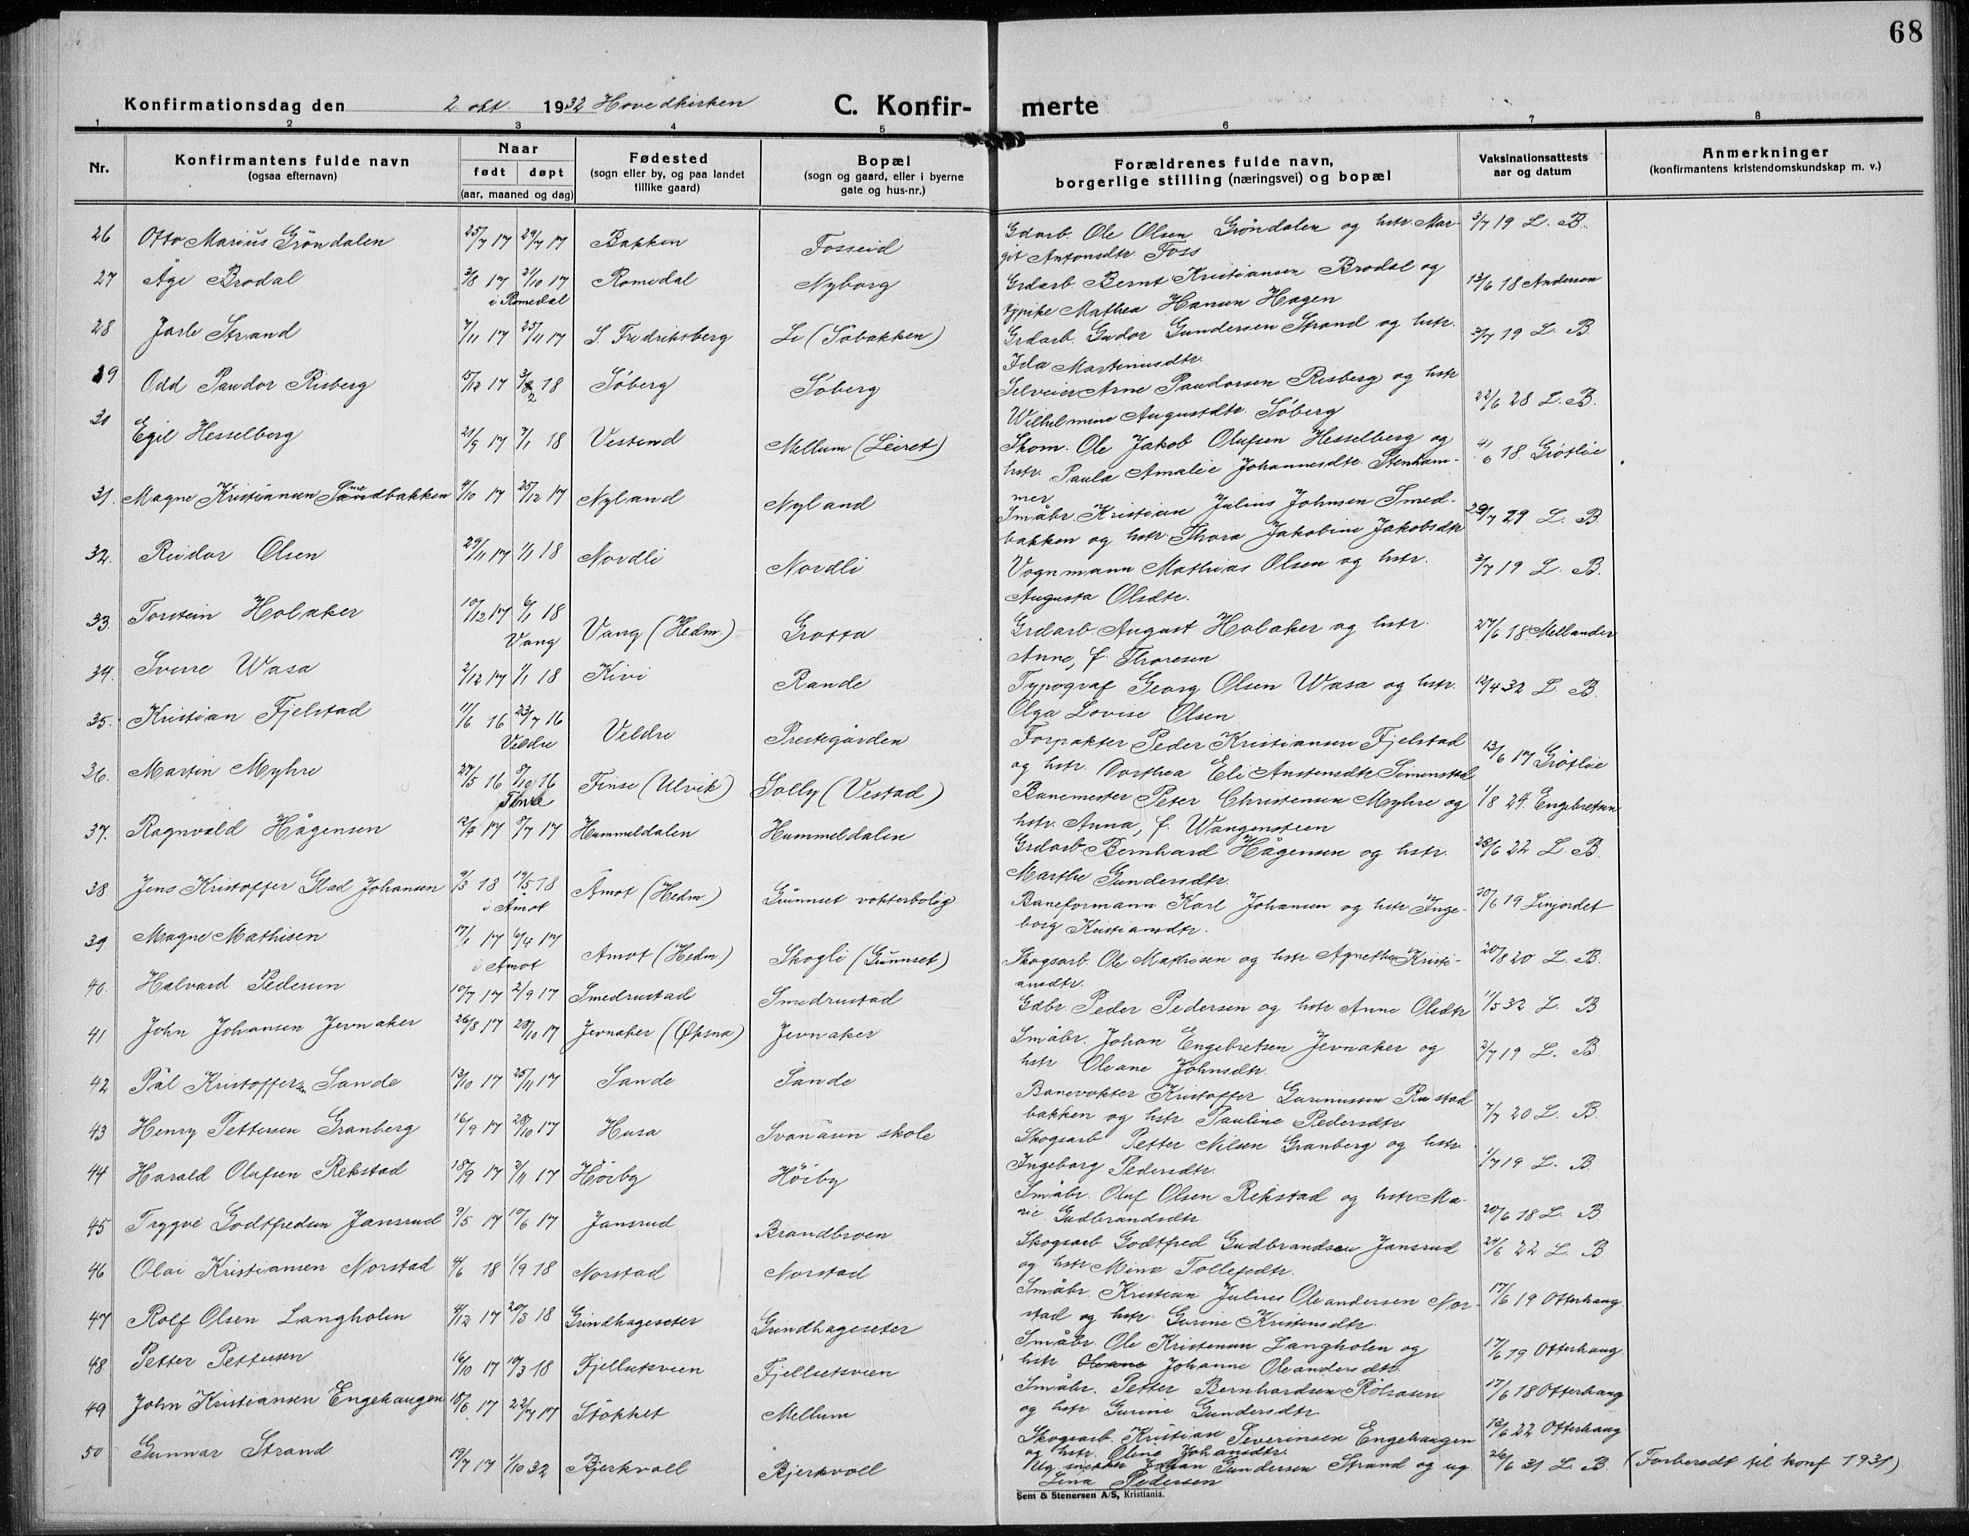 68
Konfirmationsdag den 2. okt. 1932 Hovedkirken C. Konfir- merte
1 2 3 4 5 6 7 8
Nr. Konfirmantens fulde navn (ogsaa efternavn) Naar født døpt (aar, maaned og dag) Fødested (sogn eller by, og paa landet tillike gaard) Bopæl (sogn og gaard, eller i byerne gate og hus-nr.) Forældrenes fulde navn, borgerlige stilling (næringsvei) og bopæl Vaksinationsattests aar og datum Anmerkninger (konfirmantens kristendomskundskap m. v.)
26 Otto Marius Gröndalen 25/7 17 29/7 17 Bakken Fosseid Gdarb. Ole Olsen Gröndalen og hstr. Mar- 3/7 19 L. B.
git Antonsdtr. Foss
27 Åge Brodal 3/8 17 21/10 17 Romedal Nyborg Grdarb. Bernt Kristiansen Brodal og 13/6 18 Anderson
i Romedal
pike Mathea Hansen Hagen
28 Jarle Strand 7/11 17 25/11 17 S. Fredriksberg Li (Söbakken) Grdarb. Gudor Gundersen Strand og hstr. 3/7 19 L. B.
Ida Martinusdtr.
29 Odd Paudor Risberg 15/12 17 3/2 18 Söberg Söberg Selveier Arne Paudorsen Risberg og hstr 22/6 28 L. B.
Wilhelmine Augustdtr. Söberg
30 Egil Hesselberg 21/9 17 7/1 18 Vestend Mellum (Leiret) Skom. Ole Jakob Olufsen Hesselberg og 4/6 18. Grötlie
hstr. Paula Amalie Johannesdtr. Stenham-
mer
31. Magne Kristiansen Smedbakken 4/10 17 25/12 17 Nyland Nyland Småbr. Kristian Julius Johnsen Smed- 29/7 29 L. B.
bakken og hstr. Thora Jakobine Jakobsdtr
32. Reidar Olsen 29/11 17 1/1 18 Nordli Nordli Vognmann Mathias Olsen og hstr. 3/7 19 L. B.
Augusta Olsdtr.
33. Torstein Holaker 10/12 17 6/1 18 Vang (Hedm.) Grotta Grdarb. August Holaker og hstr. 27/6 18 Mellander
Vang
Anne, f. Thoresen
34. Sverre Wasa 2/12 17 1/1 18 Kivi Rande Typograf Georg Olsen Wasa og hstr. 12/4 32 L. B.
Olga Lovise Olsen
35. Kristian Fjelstad 11/6 16 23/7 16 Veldre Prestegården Forpakter Peder Kristiansen Fjelstad 13/6 17 Grötlie
Veldre
og hstr. Dorthea Eli Austensdtr. Simenstad
36. Martin Myhre 27/5 16 8/10 16 Finse (Ulvik) Solly (Vestad) Banemester Peter Christensen Myhre og 1/8 24. Engebretsen
Finse
hstr. Anna, f. Wangensteen
37. Ragnvald Hågensen 12/2 17 8/7 17 Hummeldalen Hummeldalen Grdarb. Bernhard Hågensen og hstr. 28/6 22 L. B.
Marthe Gundersdtr.
38 Jens Kristoffer Glad Johansen 9/3 18 19/5 18 Åmot (Hedm.) Gunnset vokterbolig Baneformann Karl Johansen og hstr Inge- 20/6 19 Linjordet
i Åmot
borg Kristiansdtr.
39 Magne Mathisen 17/1 17 6/4 17 Åmot (Hedm) Skogli (Gunnset) Skogsarb. Ole Mathisen og hstr Agnethe Kristi- 20/8 20 L. B.
i Åmot
ansdtr.
40. Halvard Pedersen 10/7 17 2/9 17 Smedrustad Smedrustad Gdbr Peder Pedersen og hstr Anne Olsdtr 11/5 32 L. B
41 John Johansen Jevnaker 26/8 17 28/10 17 Jevnaker (Öpsna) Jevnaker Småbr. Johan Engebretsen Jevnaker og 2/7 19 L. B.
hstr Oleane Johnsdtr.
42 Pål Kristoffersen Sande 13/10 17 25/11 17 Sande Sande Banevokter Kristoffer Gunnussen Rustad 7/7 20 L. B.
bakken og hstr Pauline Pedersdtr.
43 Henry Pettersen Granberg 16/9 17 28/10 17 Husa Svanåsen skole Skogsarb Petter Nilsen Granberg og hstr 1/7 19 L. B
Ingeborg Pedersdtr.
44 Harald Olufsen Rekstad 18/9 17 2/11 17 Höiby Höiby Småbr. Oluf Olsen Rekstad og hstr. Ma- 20/6 18 L. B
rie Gudbrandsdtr
45 Trygve Godtfredsen Jansrud 9/5 17 10/6 17 Jansrud Brandbroen Skogsarb Godtfred Gudbrandsen Jansrud 29/6 22 L. B
og hstr Mina Tollefsdtr.
46 Olai Kristiansen Norstad 4/6 18 1/9 18 Norstad Norstad Småbr. Kristian Julius Oleandersen Nor- 17/6 19 Otterhaug
stad og hstr. Gurine Kristensdtr.
47 Rolf Olsen Langholen 4/12 17 20/3 18 Grindhageseter Grindhageseter Småbr Ole Kristensen Langholen og 17/6 19 Otterhaug
hstr Oleane Johanne Oleandersdtr
48 Petter Pettersen 16/10 17 10/3 18 Fjellsetsveen Fjellsetsveen Småbr. Petter Bernhardsen Rölsåsen 17/6 18 Otterhaug
og hstr Gurine Gundersdtr
49 John Kristiansen Engehaugen 18/6 17 22/7 17 Stökket Mellum Skogsarb. Kristian Severinsen Engehaugen 12/6 22 Otterhaug
og hstr. Oline Johansdtr.
50 Gunnar Strand 19/7 17 1/10 32 Bjerkvoll Bjerkvoll Ug snekker Johan Gundersen Strand og ug 26/6 31 L. B. (Forberedt til konf 1931)
Lina Pedersen
Sem & Stenersen A/S, Kristiania.